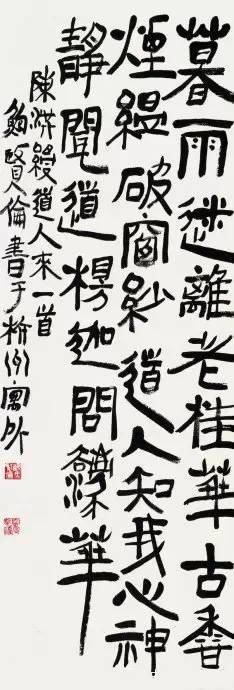 暮雨迷離老桂華古香
煙縕破窗紗道人知我心神
靜聞道楞迦問灋華
陳洪綬道人來一首
鮑賢倫書于杭州寓所